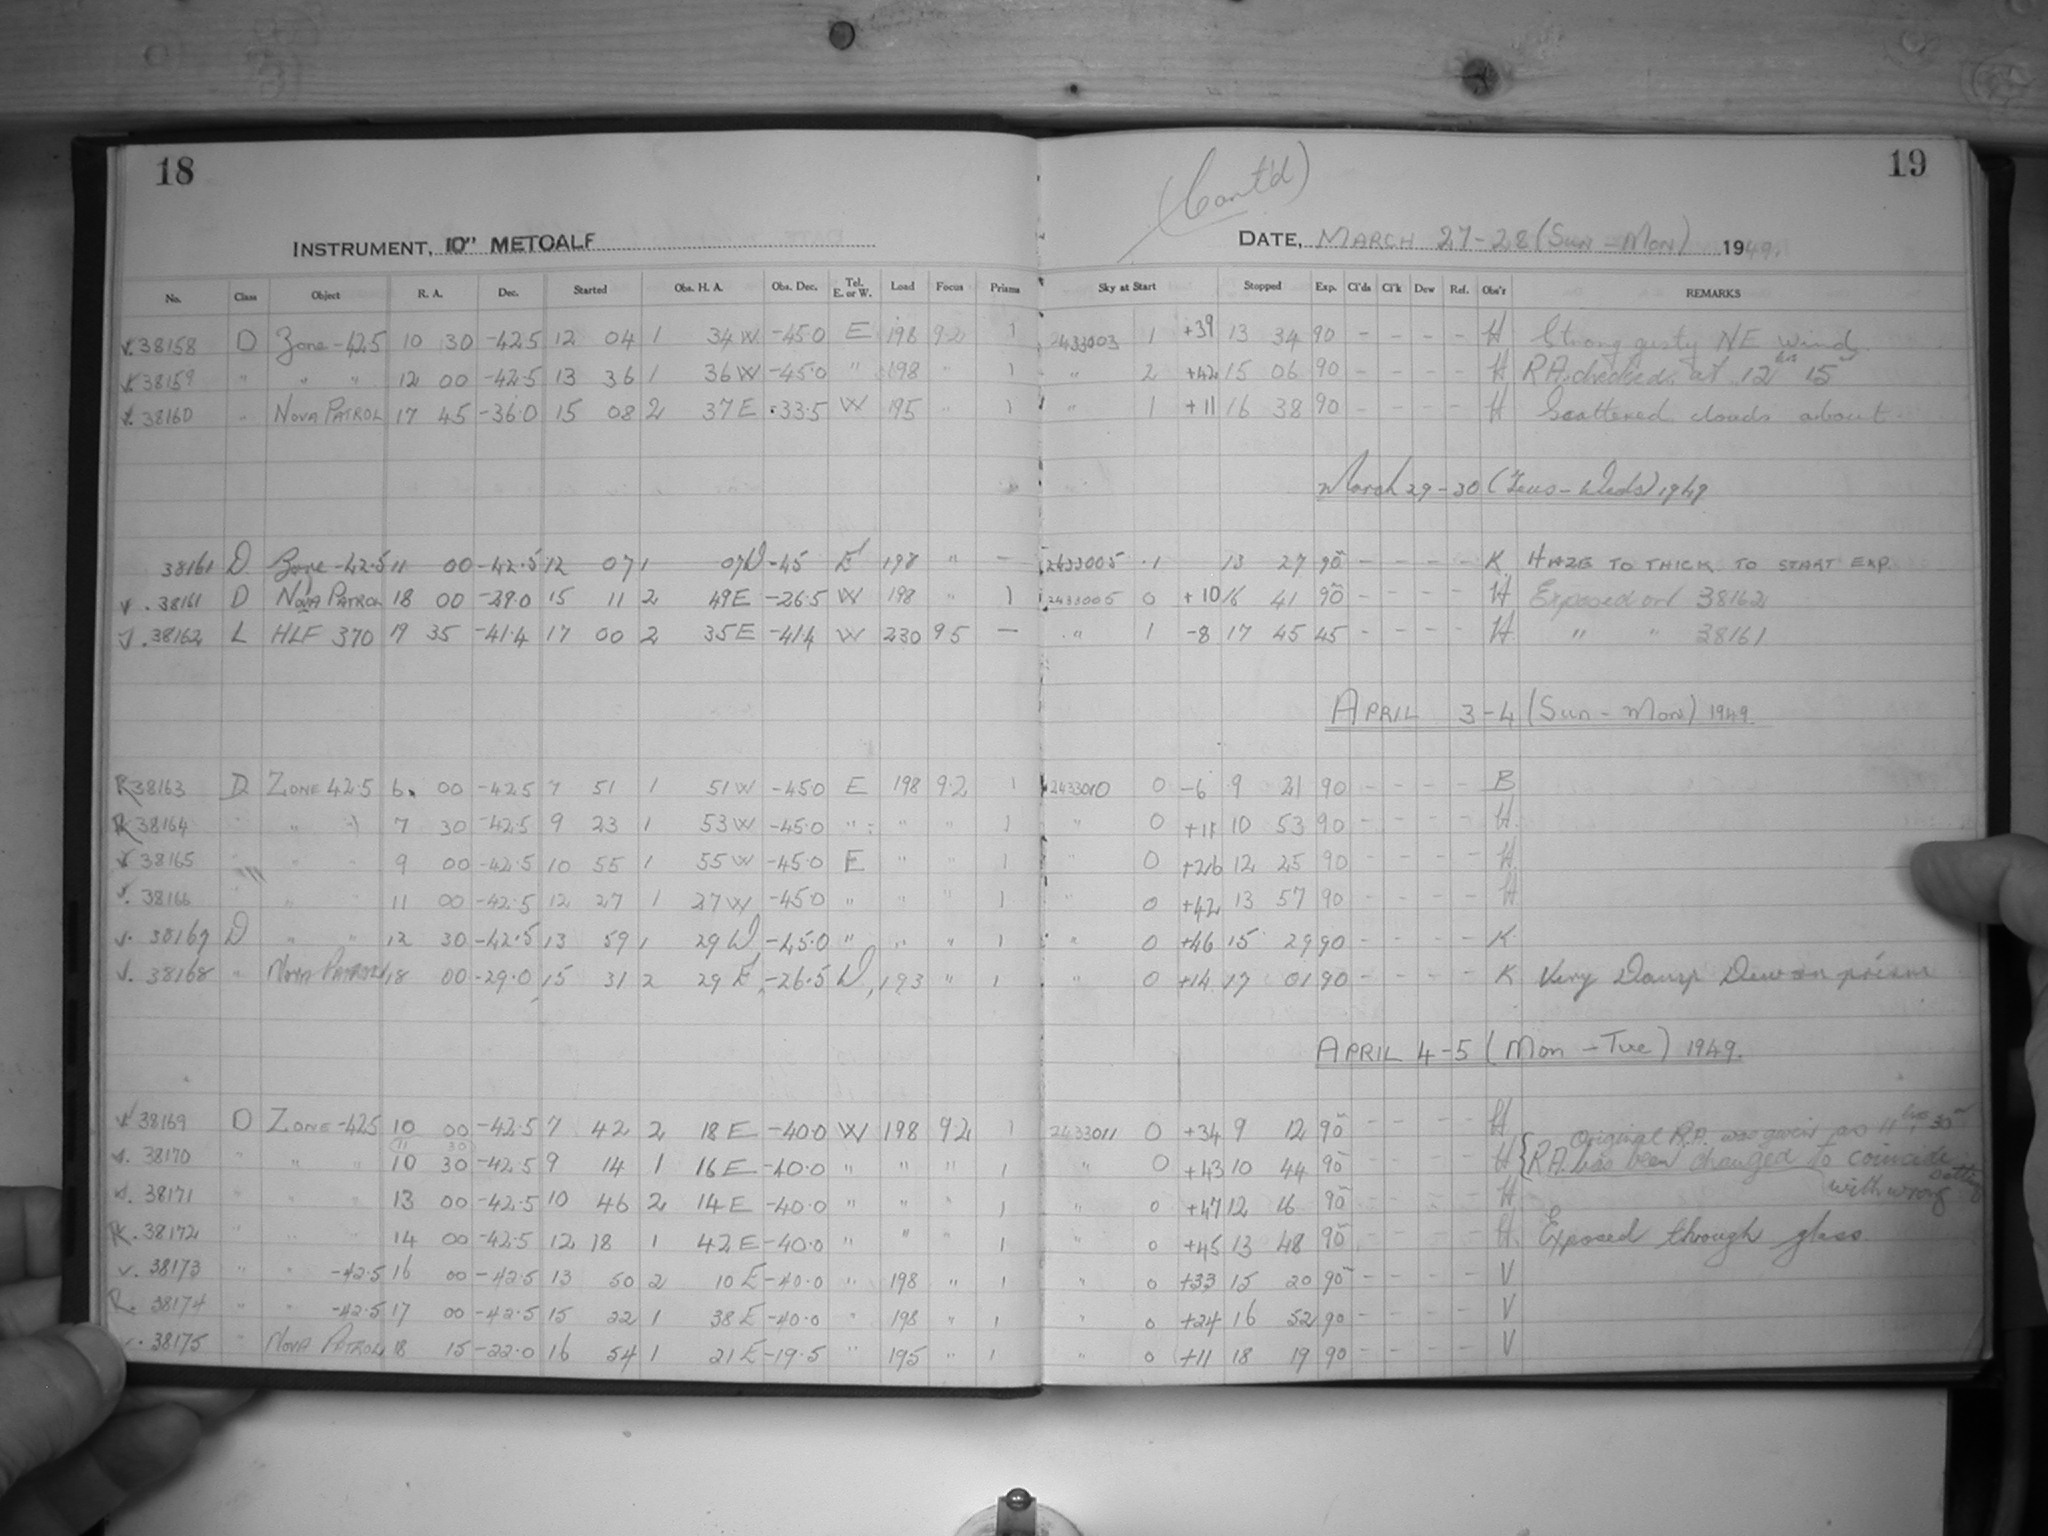 18
19
(Cont'd)
INSTRUMENT, 10" METCALF
DATE, MARCH 27-28 (SUN - MON) 1949.
No. Class Object R. A. Dec. Started Obs. H. A. Obs. Dec. Tel. E. or W. Load Focus Prisms Sky at Start Stopped Exp. Cl'ds Cl'k Dew Ref. Obs'r REMARKS
v. 38158 D Zone -42.5 10 30 -42.5 12 04 1 34 W -45.0 E 198 9.2 1 2433003 1 +39 13 34 90 - - - - H Strong gusty NE wind
v. 38159 " " " 12 00 -42.5 13 36 1 36 W -45.0 " 198 " 1 " 2 +42 15 06 90 - - - - H R.A. checked at 12 hrs 15 m
v. 38160 " NOVA PATROL 17 45 -36.0 15 08 2 37 E -33.5 W 195 " 1 " 1 +11 16 38 90 - - - - H Scattered clouds about
March 29-30 (Tues - Weds) 1949
38161 D Zone -42.5 11 00 -42.5 12 07 1 07 W -45 E 198 " - 2433005 1 13 27 90 - - - - K HAZE TO THICK TO START EXP.
v. 38161 D NOVA PATROL 18 00 -29.0 15 11 2 49 E -26.5 W 198 " 1 2433005 0 +10 16 41 90 - - - - H Exposed on 38162
v. 38162 L HLF 370 19 35 -41.4 17 00 2 35 E -41.4 W 230 9.5 - " 1 -8 17 45 45 - - - - H " " 38161
APRIL 3-4 (Sun - Mon) 1949
R 38163 D ZONE 42.5 6 00 -42.5 7 51 1 51 W -45.0 E 198 9.2 1 2433010 0 -6 9 21 90 - - - - B
R 38164 " " " 7 30 -42.5 9 23 1 53 W -45.0 " " " 1 " 0 +11 10 53 90 - - - - H
v 38165 " " " 9 00 -42.5 10 55 1 55 W -45.0 E " " 1 " 0 +26 12 25 90 - - - - H
v. 38166 " " " 11 00 -42.5 12 27 1 27 W -45.0 " " " 1 " 0 +42 13 57 90 - - - - H
v. 38167 D " " 12 30 -42.5 13 59 1 29 W -45.0 " " " 1 " 0 +46 15 29 90 - - - - K
v. 38168 " NOVA PATROL 18 00 -29.0 15 31 2 29 E -26.5 W 193 " 1 " 0 +14 17 01 90 - - - - K Very Damp Dew on prism
APRIL 4-5 (Mon - Tue) 1949.
v 38169 D ZONE -42.5 10 00 -42.5 7 42 2 18 E -40.0 W 198 9.2 1 2433011 0 +34 9 12 90 - - - - H Original R.A. was given as 11 hrs 30 m
(11 30)
v. 38170 " " " 10 30 -42.5 9 14 1 16 E -40.0 " " " 1 " 0 +43 10 44 90 - - - - H R.A. has been changed to coincide
with wrong setting
v. 38171 " " 13 00 -42.5 10 46 2 14 E -40.0 " " " 1 " 0 +47 12 16 90 - - - - H
R. 38172 " " 14 00 -42.5 12 18 1 42 E -40.0 " " 1 " 0 +45 13 48 90 - - - - H Exposed through glass
v. 38173 " " -42.5 16 00 -42.5 13 50 2 10 E -40.0 " 198 " 1 " 0 +33 15 20 90 - - - - V
R. 38174 " " -42.5 17 00 -42.5 15 22 1 38 E -40.0 " 198 " 1 " 0 +24 16 52 90 - - - - V
v. 38175 " NOVA PATROL 18 15 -22.0 16 54 1 21 E -19.5 " 195 " 1 " 0 +11 18 19 90 - - - - V